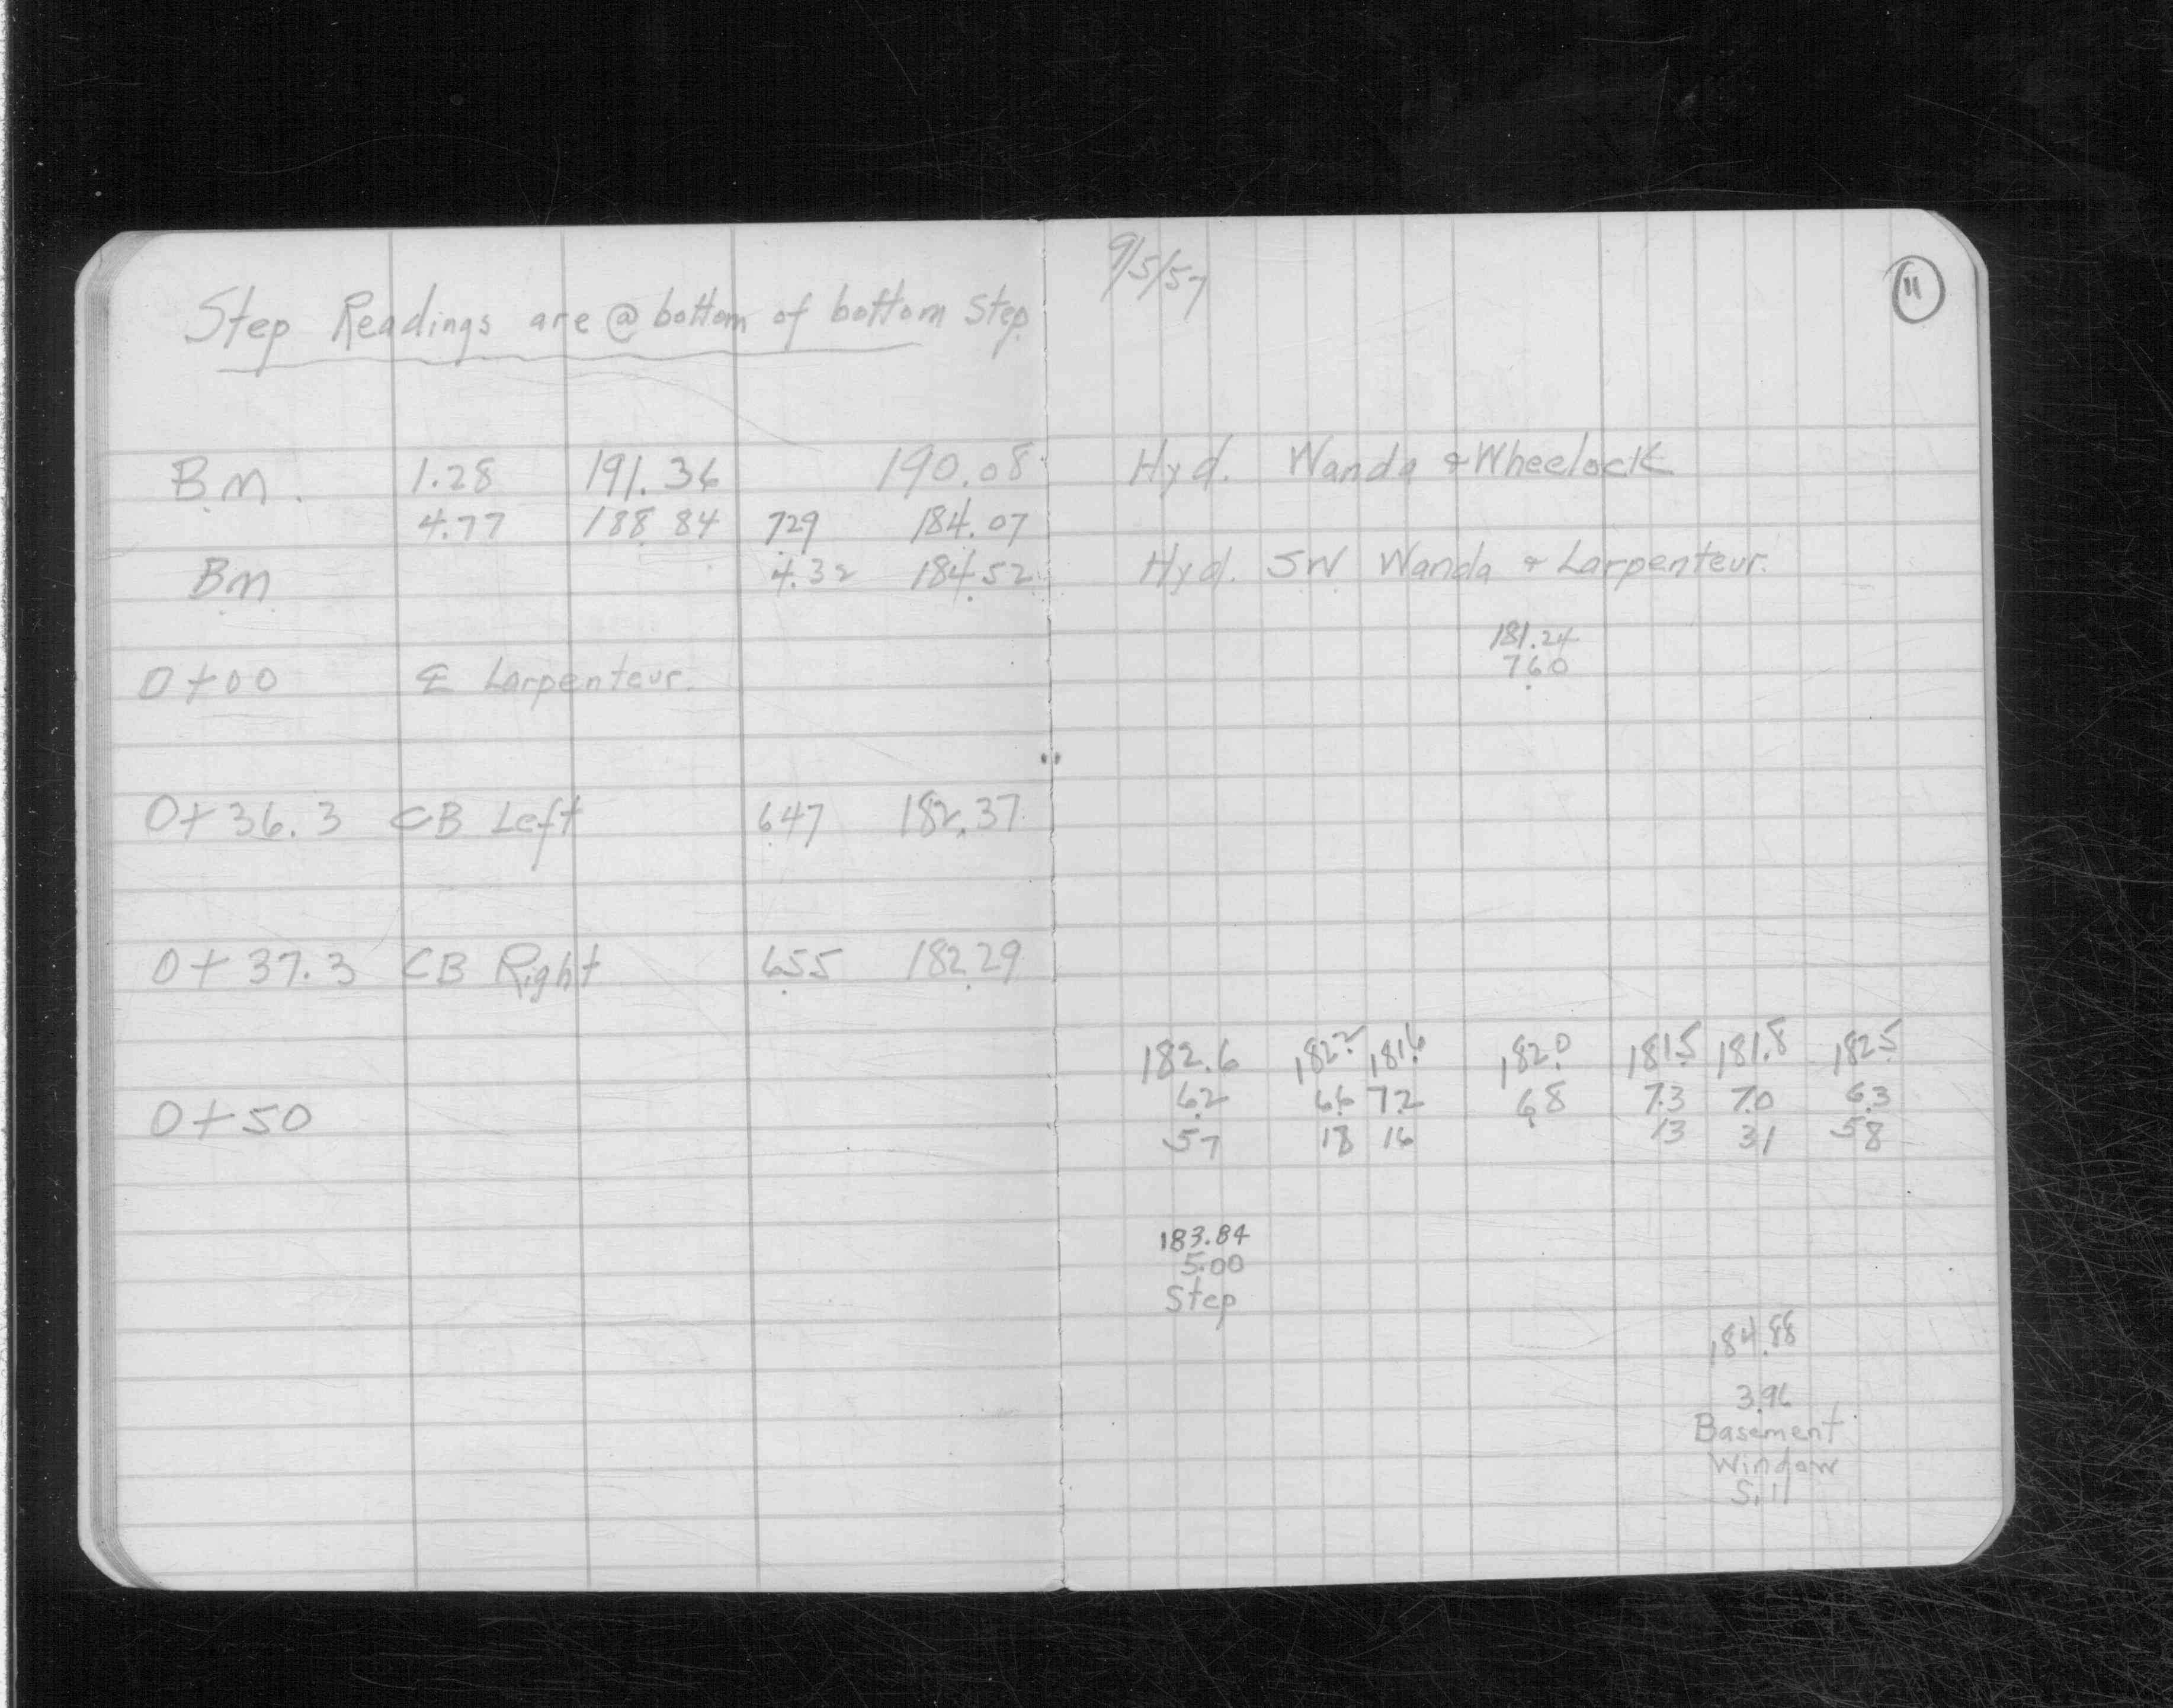 Step Readings are @ bottom of bottom Step
B.M. 1.28 191.36 190.08
4.77 188.84 7.29 184.07
BM 4.32 184.52
0+00 ℄ Larpenteur.
0+36.3 CB Left 6.47 182.37
0+37.3 CB Right 6.55 182.29
0+50
9/5/57
11
Hyd. Wanda & Wheelock
Hyd. SW Wanda & Larpenteur.
181.24
7.60
182.6 182.2 181.6 182.0 181.5 181.8 182.5
6.2 6.6 7.2 6.8 7.3 7.0 6.3
57 18 16 13 31 58
183.84
5.00
Step
184.88
3.96
Basement
Window
Sill